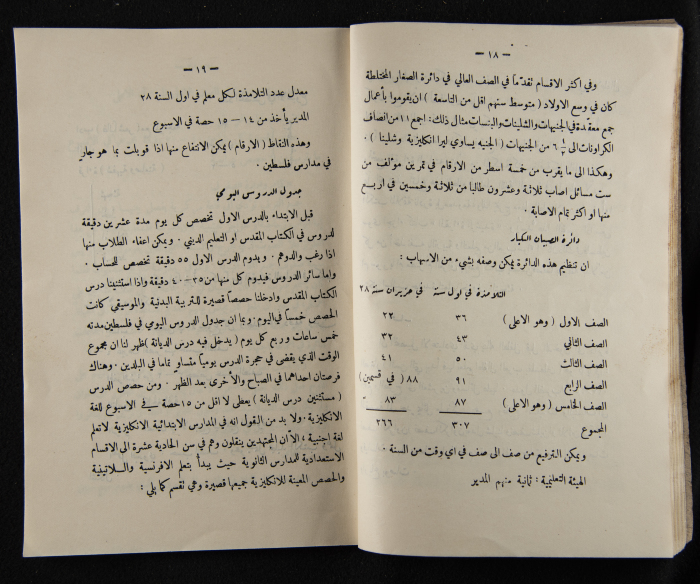 — ١٨ —
وفي اكثر الاقسام تقدّماً في الصف العالي في دائرة الصغار المختلطة
كان في وسع الاولاد ( متوسط سنهم اقل من التاسعة ) ان يقوموا بأعمال
جمع معقدة في الجنيهات والشلينات والبنسات مثال ذلك: اجمع ١١ من انصاف
الكراونات الى ¼ ٦ من الجنيهات ( الجنيه يساوي ليرا انكليزية وشلينا ) .
وهكذا الى ما يقرب من خمسة اسطر من الارقام في تمرين مؤلف من
ست مسائل اصاب ثلاثة وعشرون طالبا من ثلاثة وخمسين في اربع
منها او اكثر تمام الاصابة .
دائرة الصبيان الكبار
ان تنظيم هذه الدائرة يمكن وصفه بشيء من الاسهاب :
التلامذة في اول سنة في حزيران سنة ٢٨
الصف الاول ( وهو الاعلى ) ٣٦ ٢٢
الصف الثاني ٤٣ ٣٢
الصف الثالث ٥٠ ٤١
الصف الرابع ٩١ ٨٨ ( في قسمين )
الصف الخامس ( وهو الاعلى ) ٨٧ ٨٣ "
المجموع ٣٠٧ ٢٦٦
ويمكن الترفيع من صف الى صف في اي وقت من السنة .
الهيئة التعليمية : ثمانية منهم المدير
— ١٩ —
معدل عدد التلامذة لكل معلم في اول السنة ٣٨
المدير يأخذ من ١٤ — ١٥ حصة في الاسبوع
وهذه النقاط ( الارقام ) يمكن الانتفاع منها اذا قوبلت بما هو جار
في مدارس فلسطين .
جدول الدروس اليومي
قبل الابتداء بالدرس الاول تخصص كل يوم مدة عشرين دقيقة
لدروس في الكتاب المقدس او التعليم الديني . ويمكن اعفاء الطلاب منها
اذا رغب والدوهم . ويدوم الدرس الاول ٥٥ دقيقة تخصص للحساب .
واما سائر الدروس فيدوم كل منها من ٣٥-٤٠ دقيقة واذا استثنينا درس
الكتاب المقدس وادخلنا حصصاً قصيرة للتربية البدنية والموسيقى كانت
الحصص خمساً في اليوم . وبما ان جدول الدروس اليومي في فلسطين مدته
خمس ساعات وربع كل يوم ( يدخل فيه درس الديانة ) ظهر لنا ان مجموع
الوقت الذي يقضى في حجرة الدرس يومياً متساو تماما في البلدين . وهناك
فرصتان احداهما في الصباح والأخرى بعد الظهر . ومن حصص الدرس
( مستثنين درس الديانة ) يعطى لا اقل من ١٥ حصة في الاسبوع للغة
الانكليزية . ولا بد من القول انه في المدارس الابتدائية الانكليزية لا تعلم
لغة اجنبية ، الا ان المجتهدين ينقلون وهم في سن الحادية عشرة الى الاقسام
الاستعدادية للمدارس الثانوية حيث يبدأ بتعلم الافرنسية والسلاتينية
والحصص المعينة للانكليزية جميعها قصيرة وهي تقسم كما يلي :